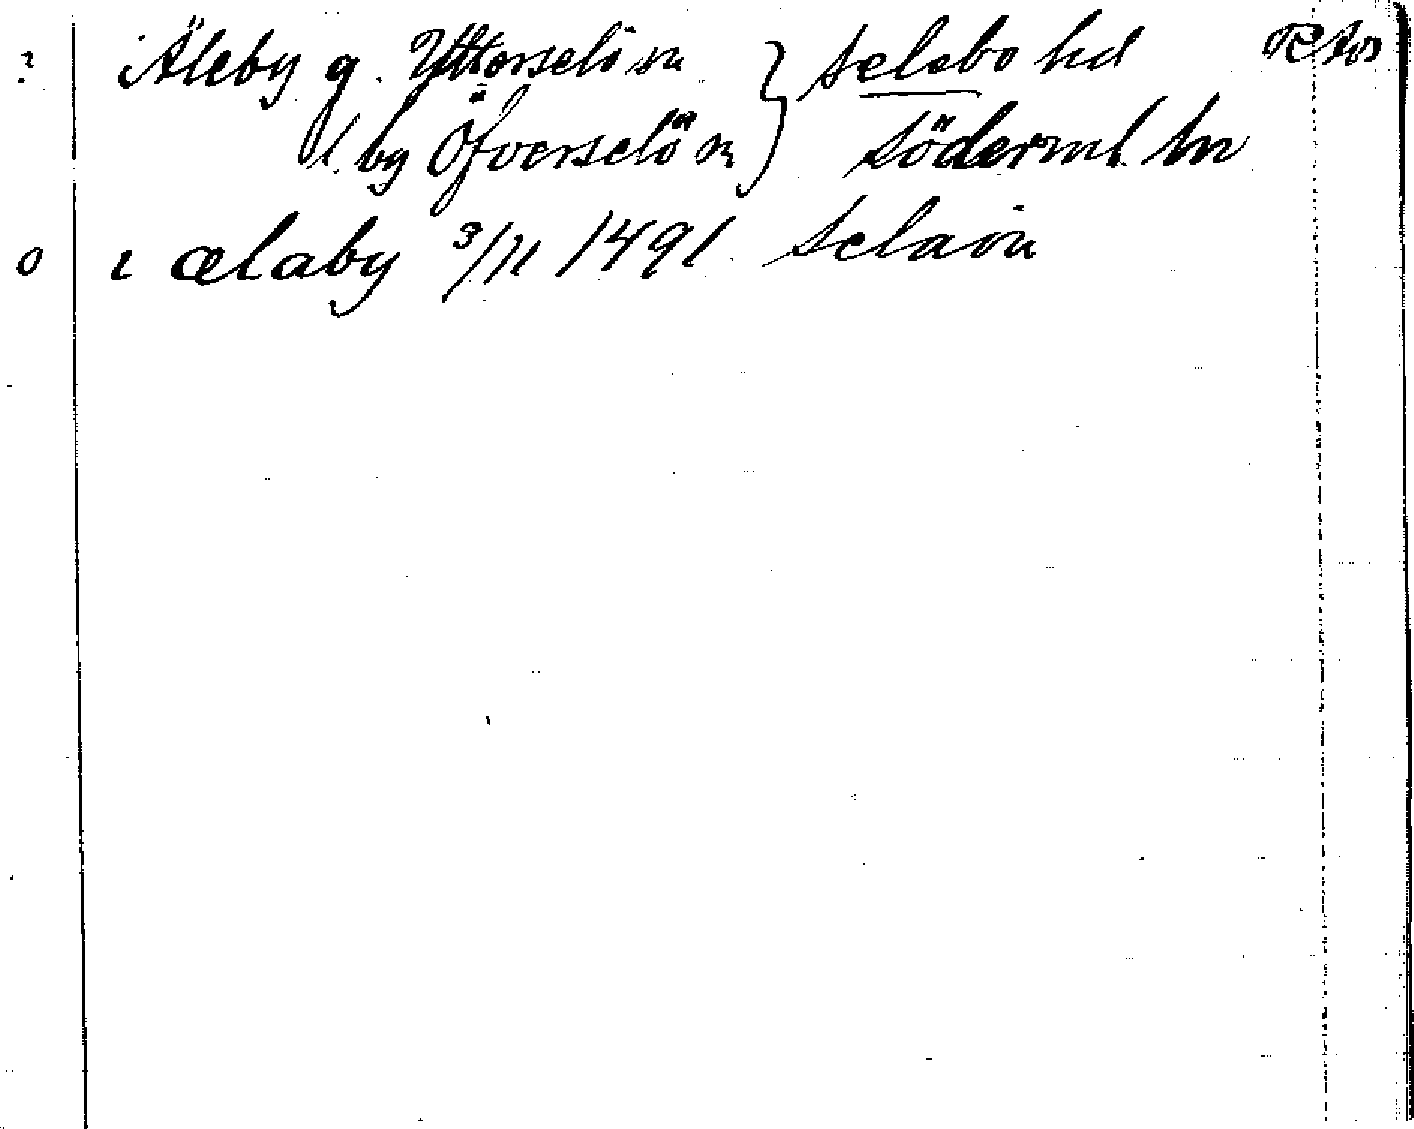 ? Äleby g. Ytterselö sn } Selebo hd
l. by Öfverselö sn } Söderml. ln
o i ælaby 3/11 1491 Selaön